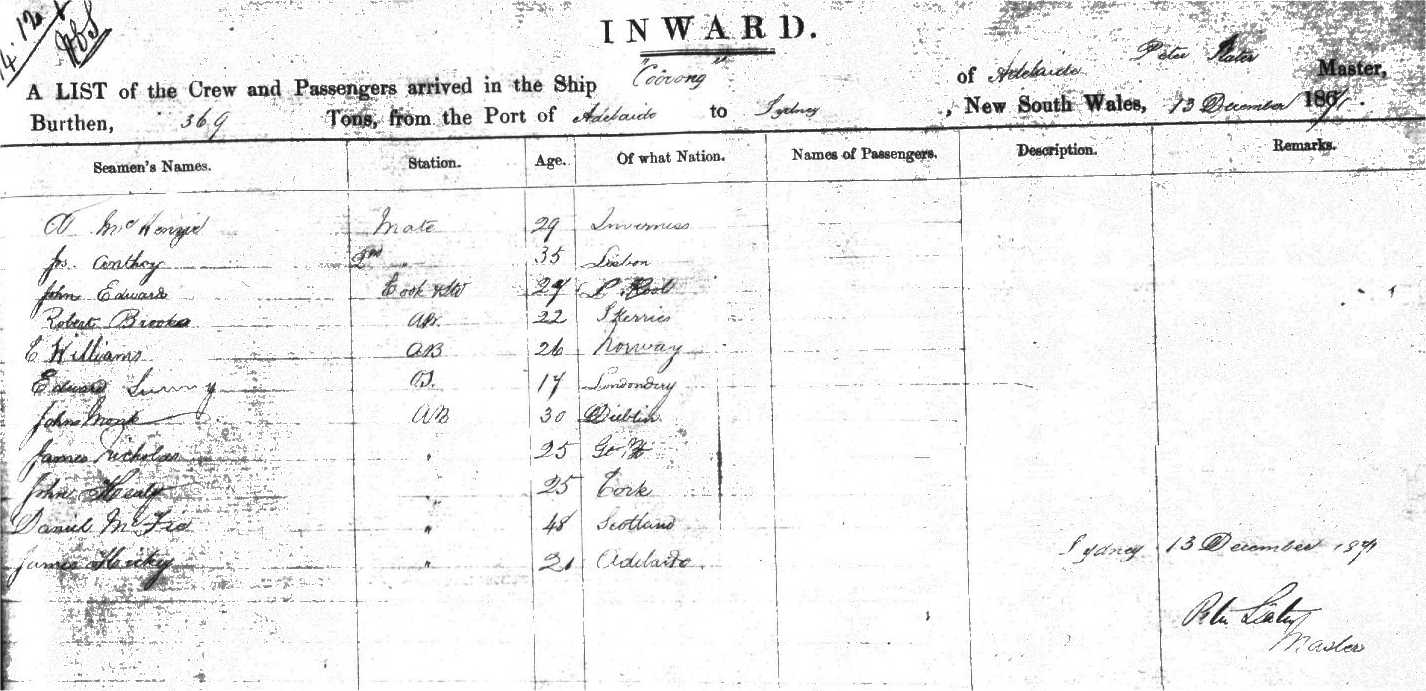 14.12
INWARD.
A LIST of the Crew and Passengers arrived in the Ship "Coorong" of Adelaide Peter Master,
Burthen, 369 Tons, from the Port of Adelaide to Sydney, New South Wales, 13 December 1871.
Seamen's Names. Station. Age. Of what Nation. Names of Passengers. Description. Remarks.
McKenzie Mate 29 Inverness
Js. Anthoy 2nd " 35 Lisbon
John Edward Cook & Std 27 L. Pool
Robert Brooks AB. 22 Skerries
E Williams AB 26 Norway
Edward 17 Londondery
John Monk AB 30 Dublin
James Nicholas " 25
John Healy " 25 Cork
Daniel " 48 Scotland
James Hickey " 21 Adelaide
Sydney 13 December 1871
Master